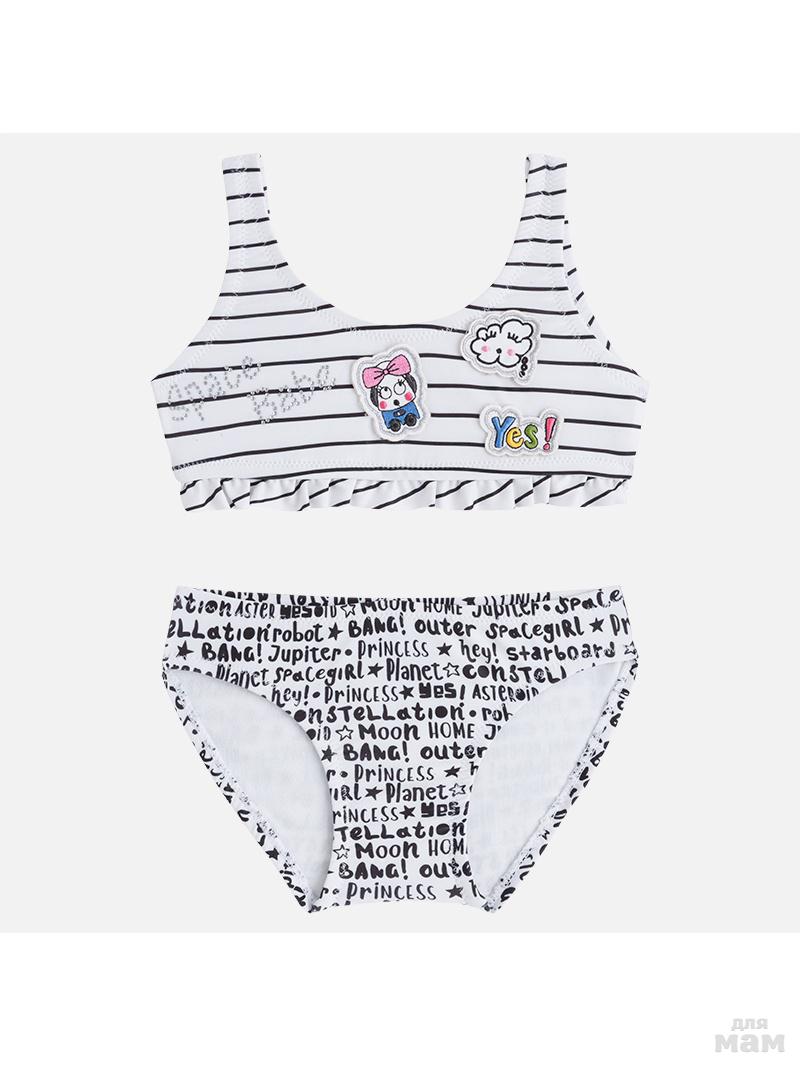 space
Babe
Yes!
ation ASTER yesoid ☆ Moon HOME Jupiter • space
ellation robot ★ BANG! outer spacegirl ★ Pr
★ BANG! Jupiter • Princess ★ hey! starboard
Planet spacegirl ★ Planet ☆ constell
hey! • Princess ★ yes! ASTEROID
onstellation • rob
oid ☆ Moon HOME J
★ BANG! outer
r • Princess ★ h
girl ★ Planet ☆
rincess ★ yes!
tellation
☆ Moon HOM
★ BANG! ou
• Princess ★
для
мам